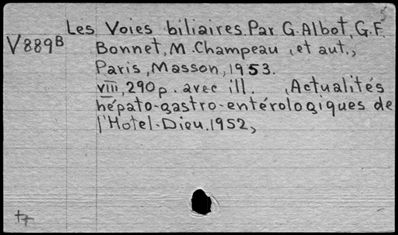 Les Voies biliaires. Par G. Albot, G. F.
V889B Bonnet, M. Champeau, et aut.,
Paris, Masson, 1953.
viii, 290p. avec ill. (Actualités
hépato-gastro-entérologiques de
l'Hotel-Dieu. 1952,